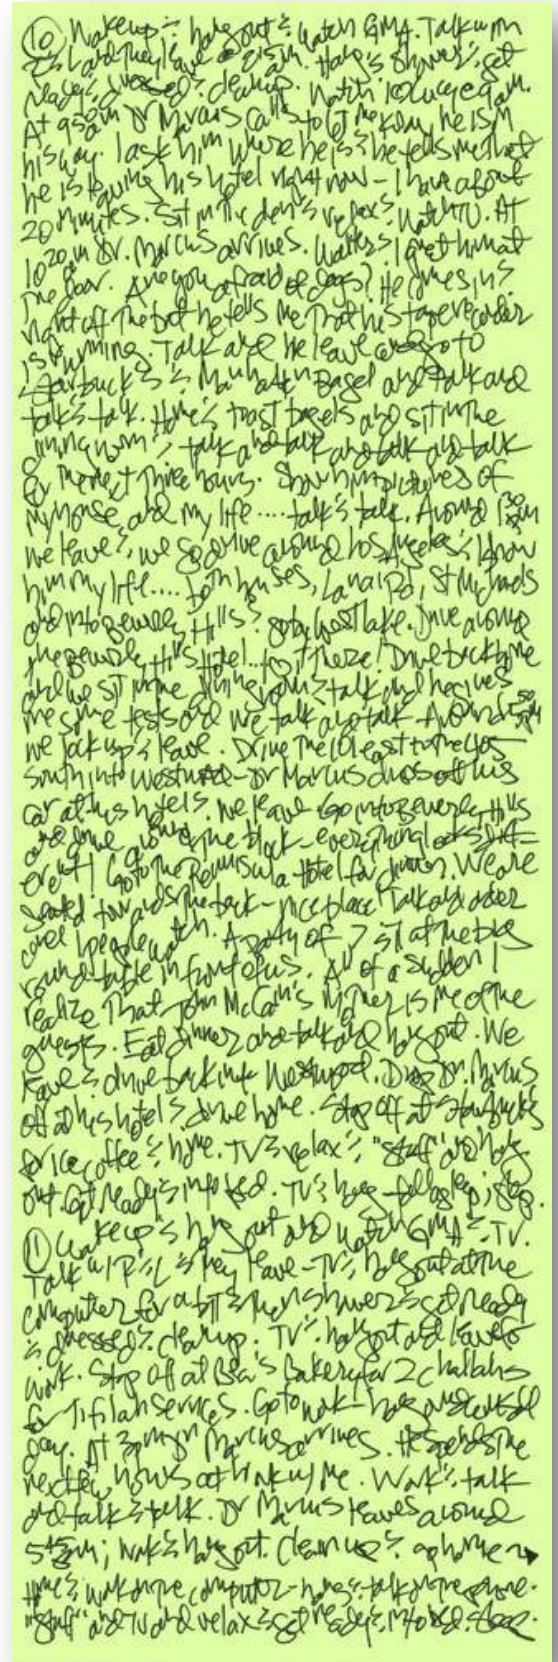 ⑩ Wakeup & hang out & watch GMA. Talk w/ m
& L and they leave @ 815am. Hang & shower & get
ready & dressed & cleanup. Watch
At 950am Dr Marcus calls to let me know he is on
his way. I ask him where he is & he tells me that
he is leaving his hotel right now - I have about
20 minutes. Sit in the den & relax & watch TV. At
1020am Dr. Marcus arrives. I greet him at
the door. Are you afraid of dogs? He comes in &
right off the bat he tells me that his tape recorder
is running. Talk and he leave and go to
Starbucks & Manhattan Bagel and talk and
talk & talk. Home & toast bagels and sit in the
dining room & talk and talk and talk and talk
for the next three hours. Show him pictures of
my house and my life .... talk & talk. Around 130pm
we leave & we go drive around Los Angeles & I show
him my life .... both houses, Lanai Rd, St Michaels
and into Beverly Hills & go by Westlake. Drive around
the Beverly Hills Hotel... Drive back home
and we sit in the dining room & talk and he gives
me some tests and we talk and talk - Around 550pm
we lock up & leave. Drive the 101 east to the 405
south into Westwood - Dr Marcus drops off his
car at his hotel & we leave. Go into Beverly Hills
and drive around the block - everything looks diff-
erent! Go to the Peninsula Hotel for dinner. We are
seated towards the back - nice place! Talk and order
and people watch. A party of 7 sit at the big
round table in front of us. All of a sudden I
realize that John McCain's mother is one of the
guests. Eat dinner and talk and hang out. We
leave & drive back into Westwood. Drop Dr. Marcus
off at his hotel & drive home. Stop off at Starbucks
for ice coffee & home. TV & relax & "stuff" and hang
out. Get ready & into bed. TV & hang - fall asleep; sleep.
⑪ Wakeup & hang out and watch GMA & TV.
Talk w/ P & L & they leave - TV & hang out at the
computer for a bit & then shower & get ready
& dressed & cleanup. TV & hang out and leave for
work. Stop off at Bea's Bakery for 2 challahs
for Tifilah services. Go to work - hang and work all
day. At 3pm Dr Marcus arrives. He spends the
next few hours at work w/ me. Work & talk
and talk & talk. Dr Marcus leaves around
545pm; work & hang out. Clean up & go home →
Home & work on the computer - hang & talk on the phone.
"Stuff" and TV and relax & get ready & into bed. Sleep.